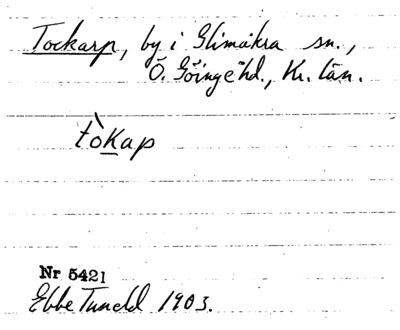 Tockarp, by i Glimåkra sn.,
Ö. Göinge hd., Kr. län.
tòkap
Nr 5421
Ebbe Tuneld 1903.